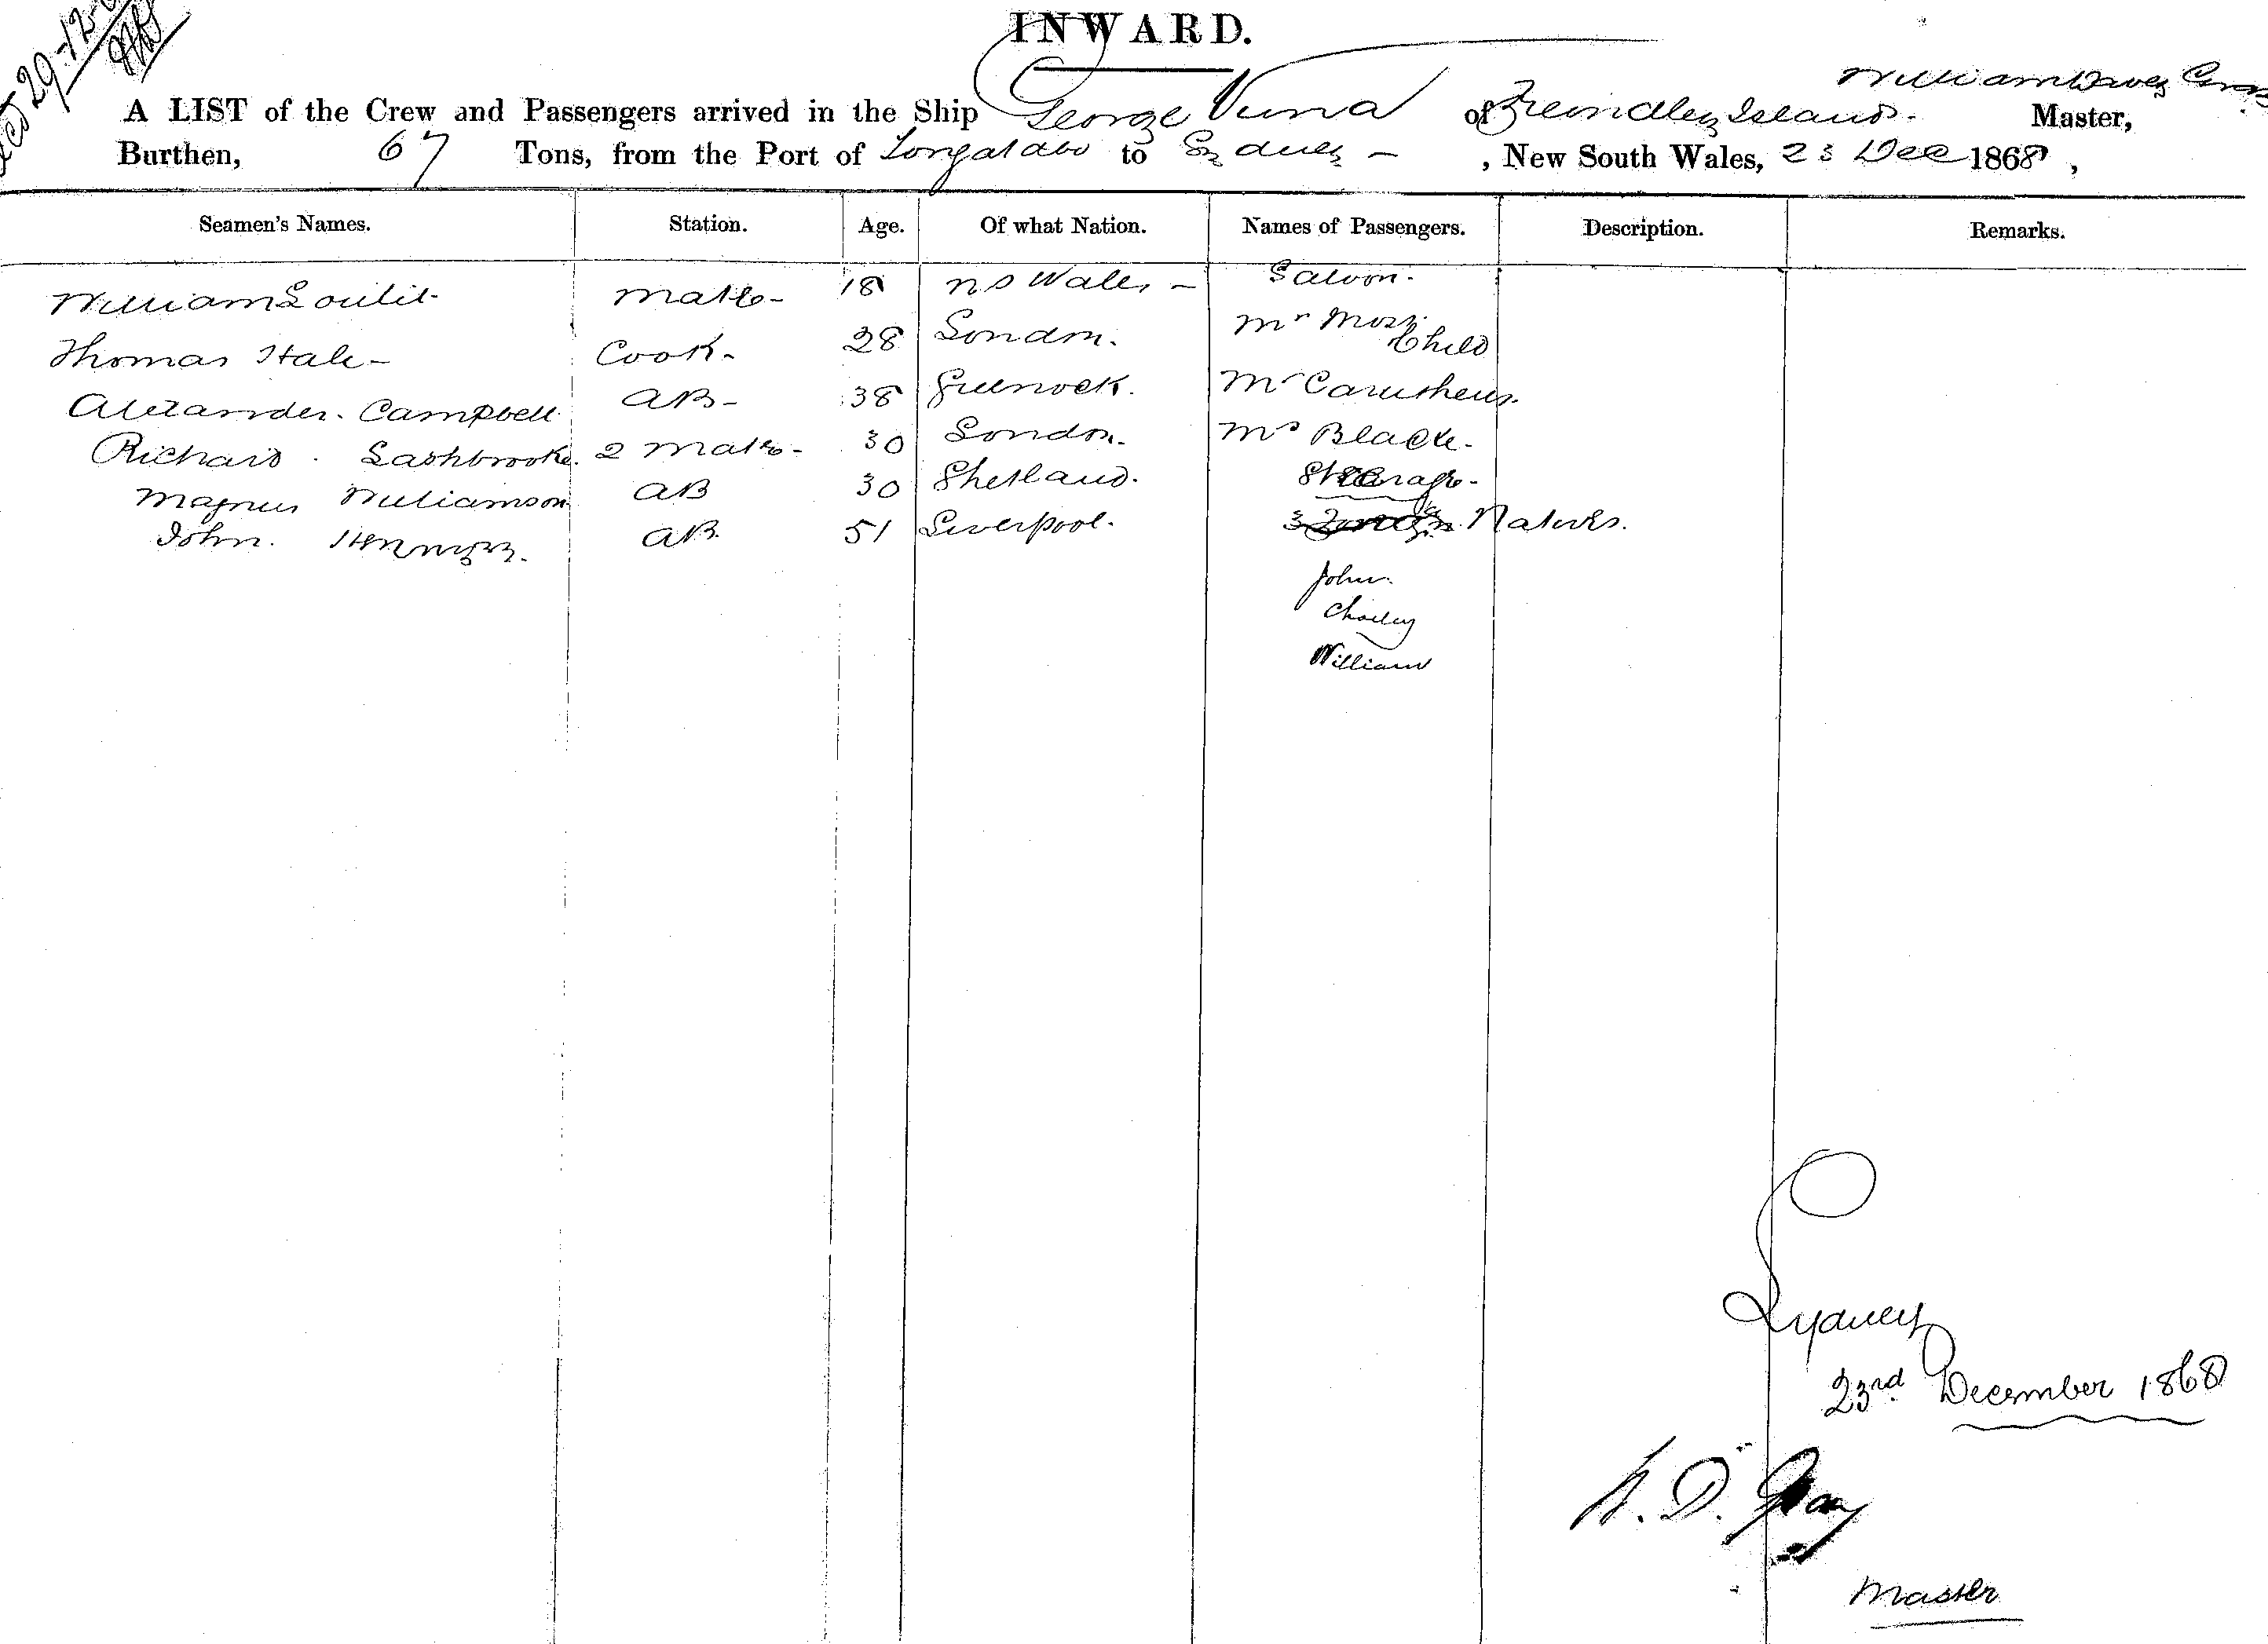 29-12-
INWARD.
William Davey
A LIST of the Crew and Passengers arrived in the Ship George Vuna of Freindley Islands. Master,
Burthen, 67 Tons, from the Port of Tongatabo to Sydney - , New South Wales, 23 Dec 1868 ,
Seamen's Names. Station. Age. Of what Nation. Names of Passengers. Description. Remarks.
Saloon.
William Loutit Mate- 18 N S Wales - Mr Moss
Child
Thomas Hale- Cook- 28 London.
Alexander. Campbell AB- 38 Greenock. Mr Caruthers.
Richard. Lashbrooke. 2 Mate- 30 London. Black-
Magnus Williamson AB 30 Shetland. Steerage-
John. AB. 51 Liverpool. 3 Natives.
John.
Charley
William
Sydney
23rd December 1868
Master